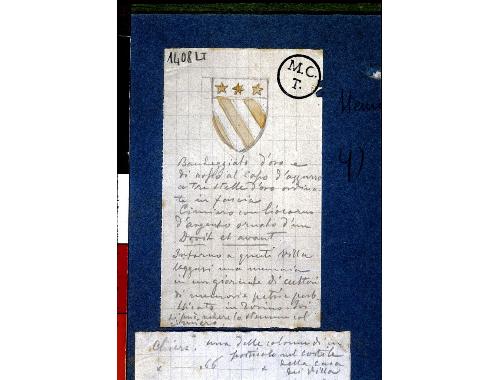 1408 LT
M.C.
T.
Bandeggiato d'oro e
di rosso al capo d'azzurro
a tre stelle d'oro ordina
te in fascia
Cimiero con liocorno
d'argento ornato d'un
Droit et avant
Intorno a questi Villa
leggasi una memoria
in un giornale di cultori
di memorie patrie pub
blicato in Torino. Ivi
si può vedere lo stemma col
cimiero
Chieri. una delle colonne di un
porticato nel cortile
" 66 " della casa
dei Villa
4)